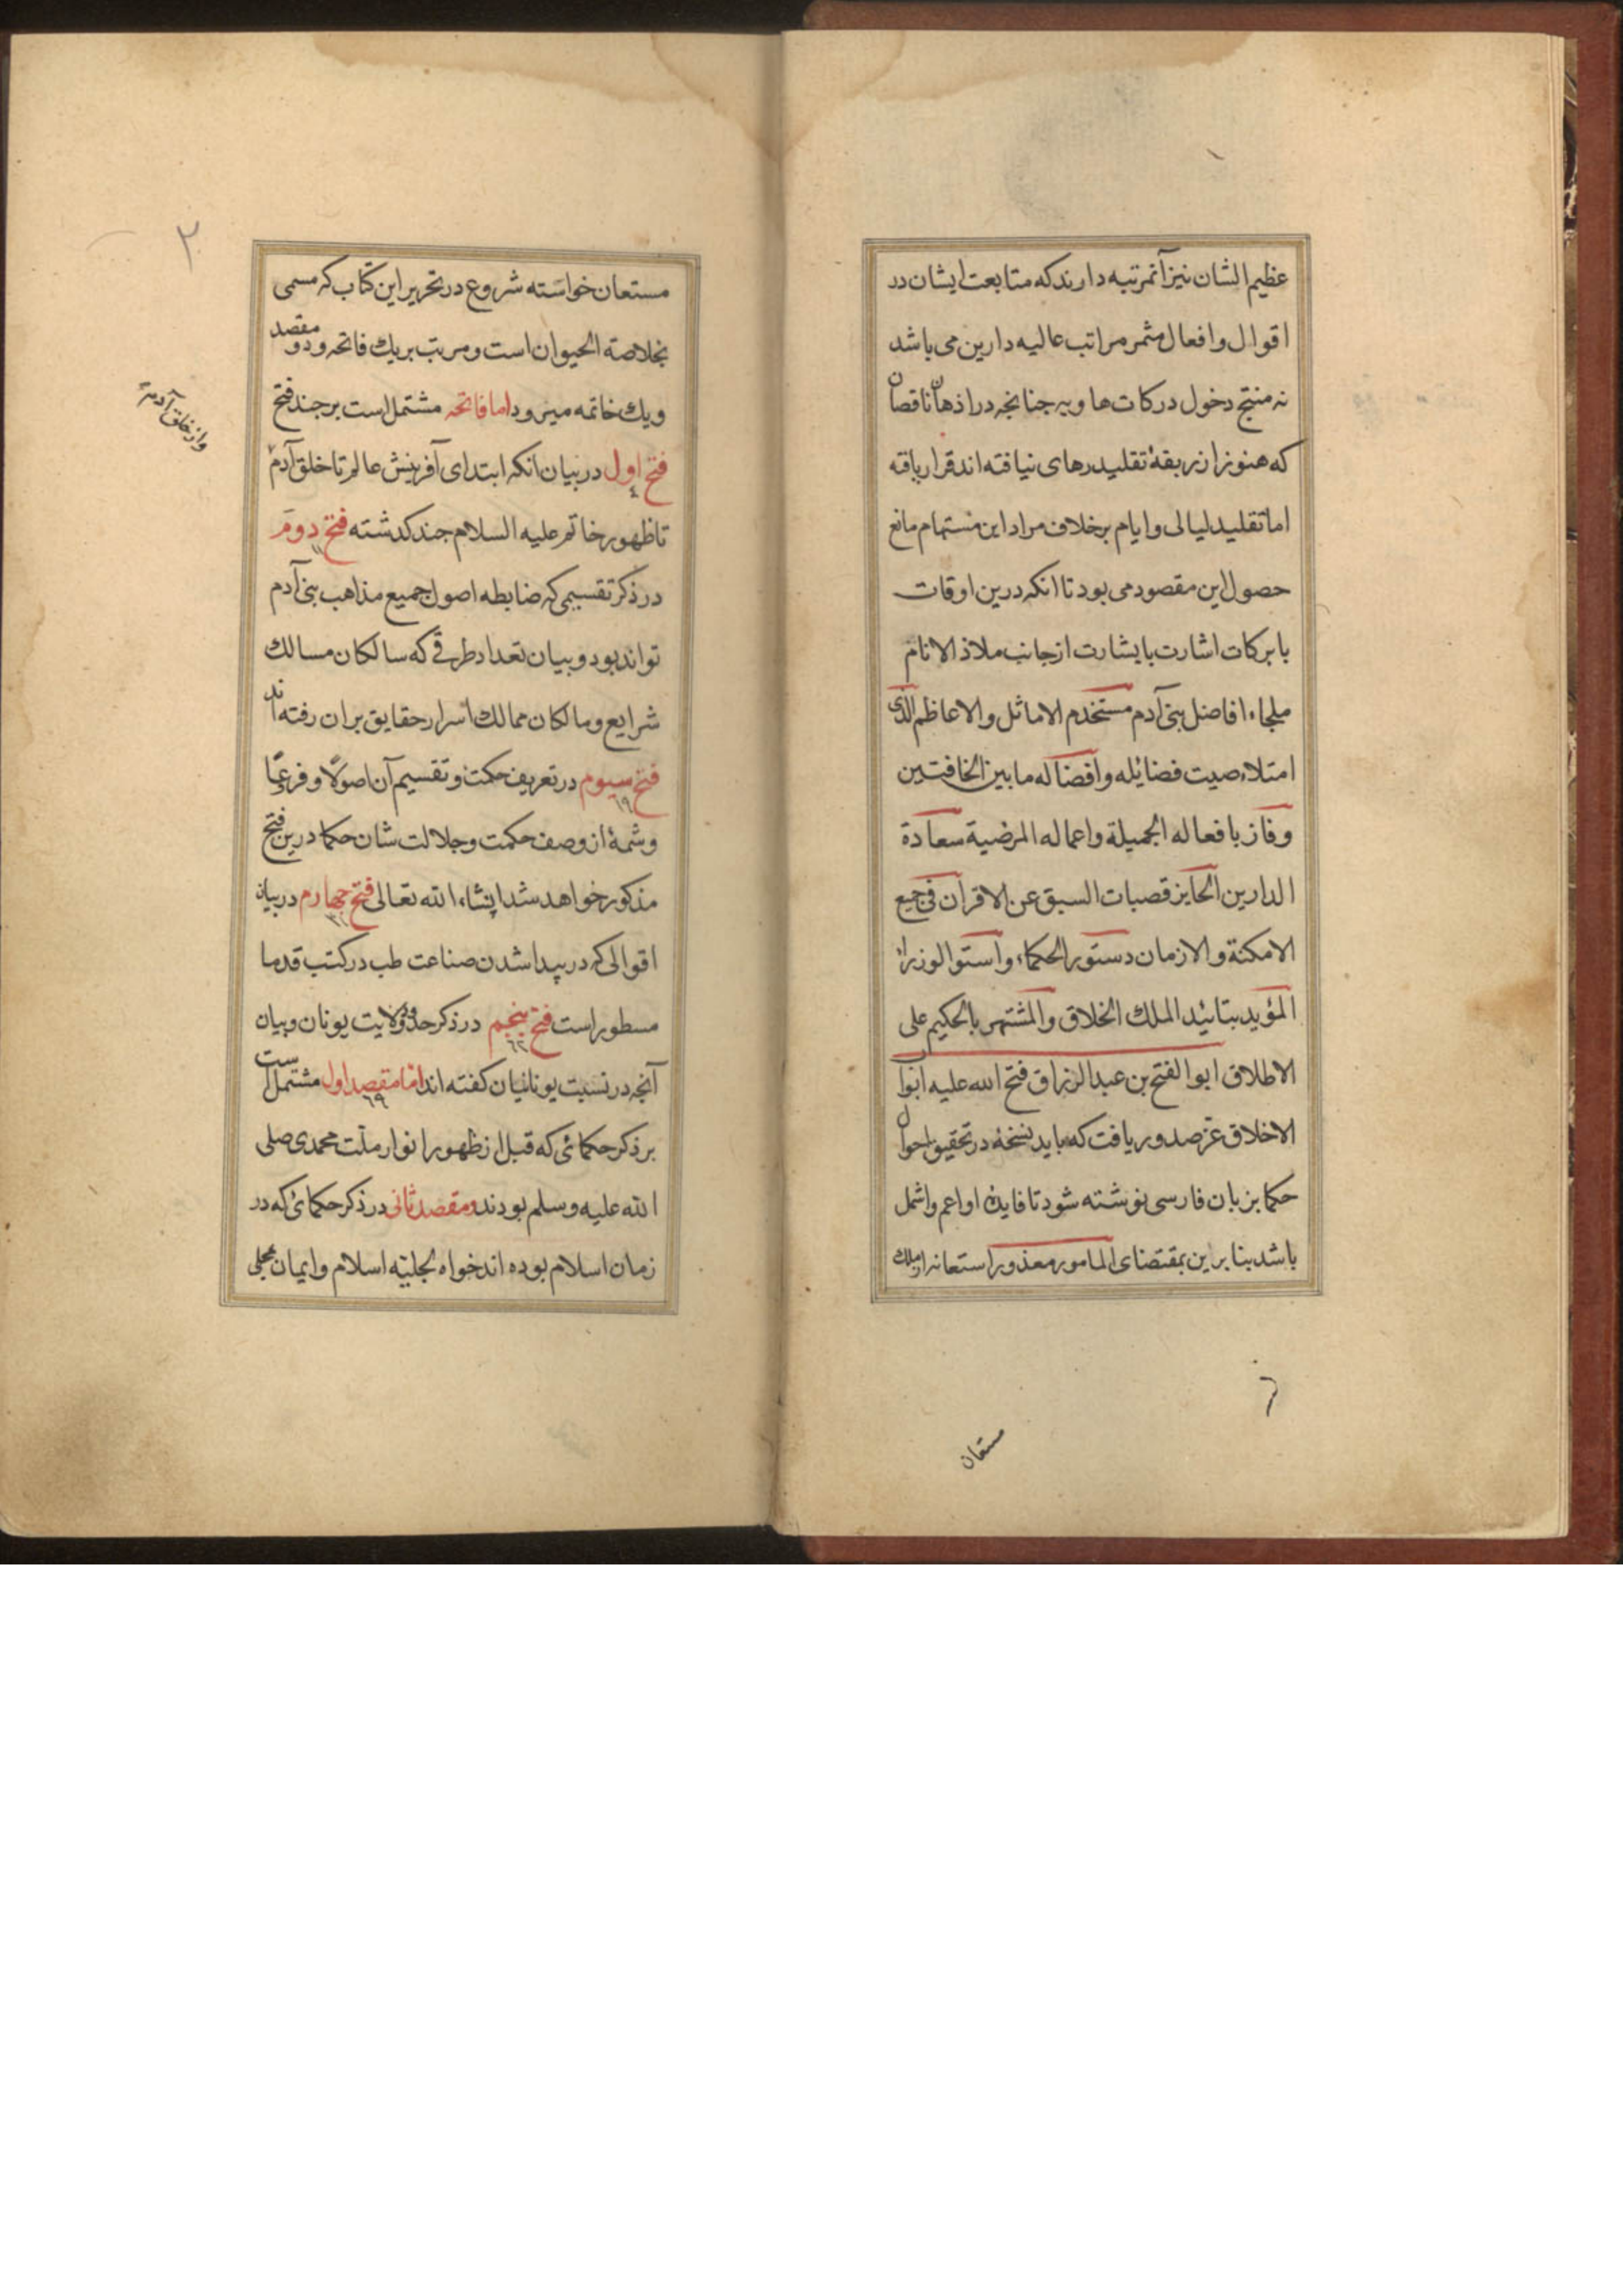 عظیم الشان نیز آنمرتبه دارند که متابعت ایشان در
اقوال و افعال مثمر مراتب عالیه دارین می باشد
نه منتج دخول درکات هاویه جنانجه در اذهان ناقصان
که هنوز از ربقهٔ تقلید رهای نیافته اند قرار یافته
اما تقلید لیالی و ایام بر خلاف مراد این مستهام مانع
حصول این مقصود می بود تا انکه درین اوقات
با برکات اشارت با بشارت از جانب ملاذ الانام
ملجاء افاضل بنی آدم مستخدم الاماثل والاعاظم الذی
امتلاء صیت فضائله وافضاله ما بین الخافقین
وفاز بافعاله الجمیلة واعماله المرضیة سعادة
الدارین الحایز قصبات السبق عن الاقران فی جمیع
الامکنة والازمان دستور الحکماء واستوا الوزراء
المؤید بتائید الملك الخلاق والمشتهر بالحکیم علی
الاطلاق ابو الفتح بن عبد الرزاق فتح الله علیه ابوا
الاخلاق عز صدور یافت که باید نسخهٔ در تحقیق احوال
حکما بزبان فارسی نوشته شود تا فایدهٔ او اعم واشمل
باشد بنا برین بمقتضای المامور معذور استعانه از ملك
مستعان
۲
مستعان خواسته شروع در تحریر این کتاب که مسمی
بخلاصة الحیوان است و مرتب بر یك فاتحه و دو مقصد
و یك خاتمه میرود اما فاتحه مشتمل است بر جند فتح
فتح اول در بیان انکه ابتدای آفرینش عالم تا خلق آدم
واز خلق آدم
تا ظهور خاتم علیه السلام جند کدشته فتح دوم
در ذکر تقسیمی که ضابطه اصول جمیع مذاهب بنی آدم
تواند بود و بیان تعداد طرقی که سالکان مسالك
شرایع و مالکان ممالك اسرار حقایق بران رفته اند
فتح سیوم در تعریف حکمت و تقسیم آن اصولًا و فرعًا
و شمهٔ از وصف حکمت و جلالت شان حکما درین فتح
مذکور خواهد شد انشاء الله تعالی فتح جهارم در بیان
اقوالی که در پیدا شدن صناعت طب در کتب قدما
مسطور است فتح پنجم در ذکر حدود ولایت یونان و بیان
آنجه در نسبت یونانیان کفته اند اما مقصد اول مشتمل است
بر ذکر حکمائی که قبل از ظهور انوار ملّت محمدی صلی
الله علیه وسلم بودند و مقصد ثانی در ذکر حکمائی که در
زمان اسلام بوده اند خواه بحلیّه اسلام و ایمان محلی